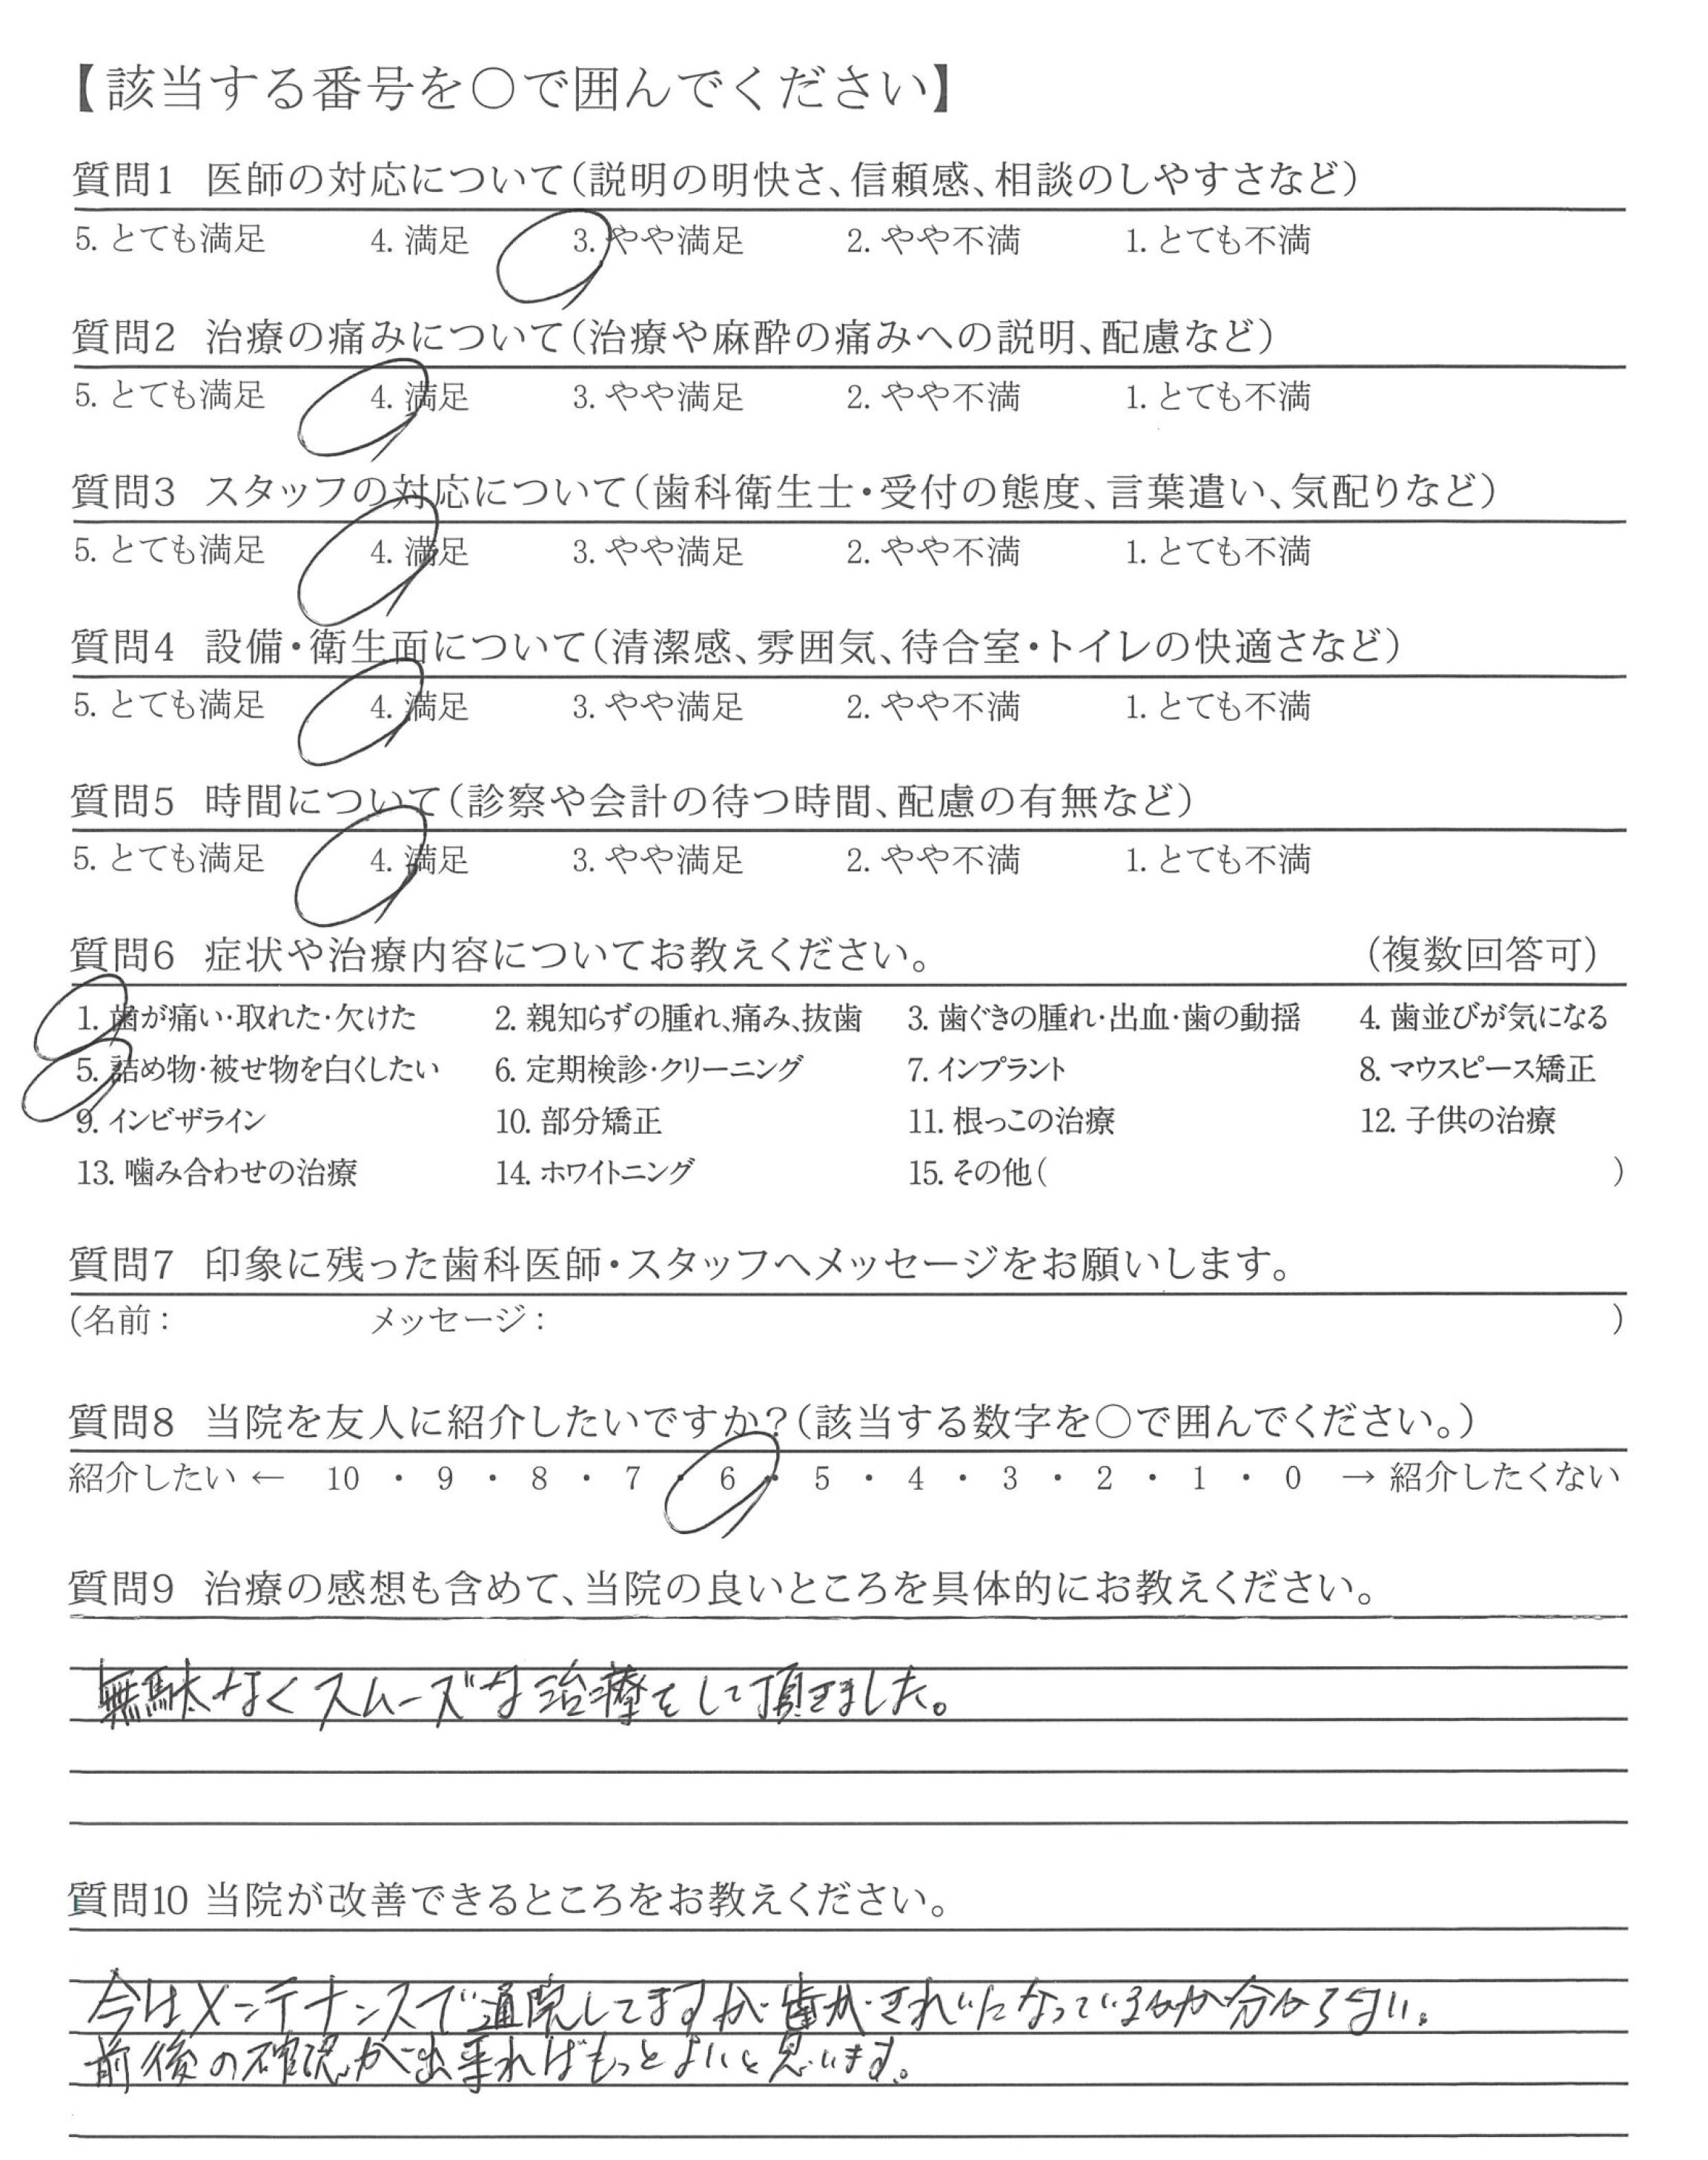 【該当する番号を○で囲んでください】
質問1 医師の対応について(説明の明快さ、信頼感、相談のしやすさなど)
5. とても満足 4. 満足 3. やや満足 2. やや不満 1. とても不満
質問2 治療の痛みについて(治療や麻酔の痛みへの説明、配慮など)
5. とても満足 4. 満足 3. やや満足 2. やや不満 1. とても不満
質問3 スタッフの対応について(歯科衛生士・受付の態度、言葉遣い、気配りなど)
5. とても満足 4. 満足 3. やや満足 2. やや不満 1. とても不満
質問4 設備・衛生面について(清潔感、雰囲気、待合室・トイレの快適さなど)
5. とても満足 4. 満足 3. やや満足 2. やや不満 1. とても不満
質問5 時間について(診察や会計の待つ時間、配慮の有無など)
5. とても満足 4. 満足 3. やや満足 2. やや不満 1. とても不満
質問6 症状や治療内容についてお教えください。 (複数回答可)
1. 歯が痛い・取れた・欠けた 2. 親知らずの腫れ、痛み、抜歯 3. 歯ぐきの腫れ・出血・歯の動揺 4. 歯並びが気になる
5. 詰め物・被せ物を白くしたい 6. 定期検診・クリーニング 7. インプラント 8. マウスピース矯正
9. インビザライン 10. 部分矯正 11. 根っこの治療 12. 子供の治療
13. 噛み合わせの治療 14. ホワイトニング 15. その他( )
質問7 印象に残った歯科医師・スタッフへメッセージをお願いします。
(名前： メッセージ： )
質問8 当院を友人に紹介したいですか?(該当する数字を○で囲んでください。)
紹介したい ← 10 ・ 9 ・ 8 ・ 7 ・ 6 ・ 5 ・ 4 ・ 3 ・ 2 ・ 1 ・ 0 → 紹介したくない
質問9 治療の感想も含めて、当院の良いところを具体的にお教えください。
無駄なくスムーズな治療をして頂きました。
質問10 当院が改善できるところをお教えください。
今はメンテナンスで通院してますが歯がきれいになっているか分からない。
前後の確認が出来ればもっとよいと思います。